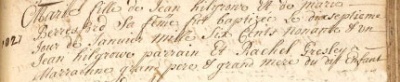 Marthe fille de Jean hilgrove et de marie
Berresford sa feme fut baptizee le dixseptieme
Jour de Januier mille Six Cents nonante & un
Jean hilgrove parrain et Rachel Presley
Marraine grand pere & grand mere du dit Enfant